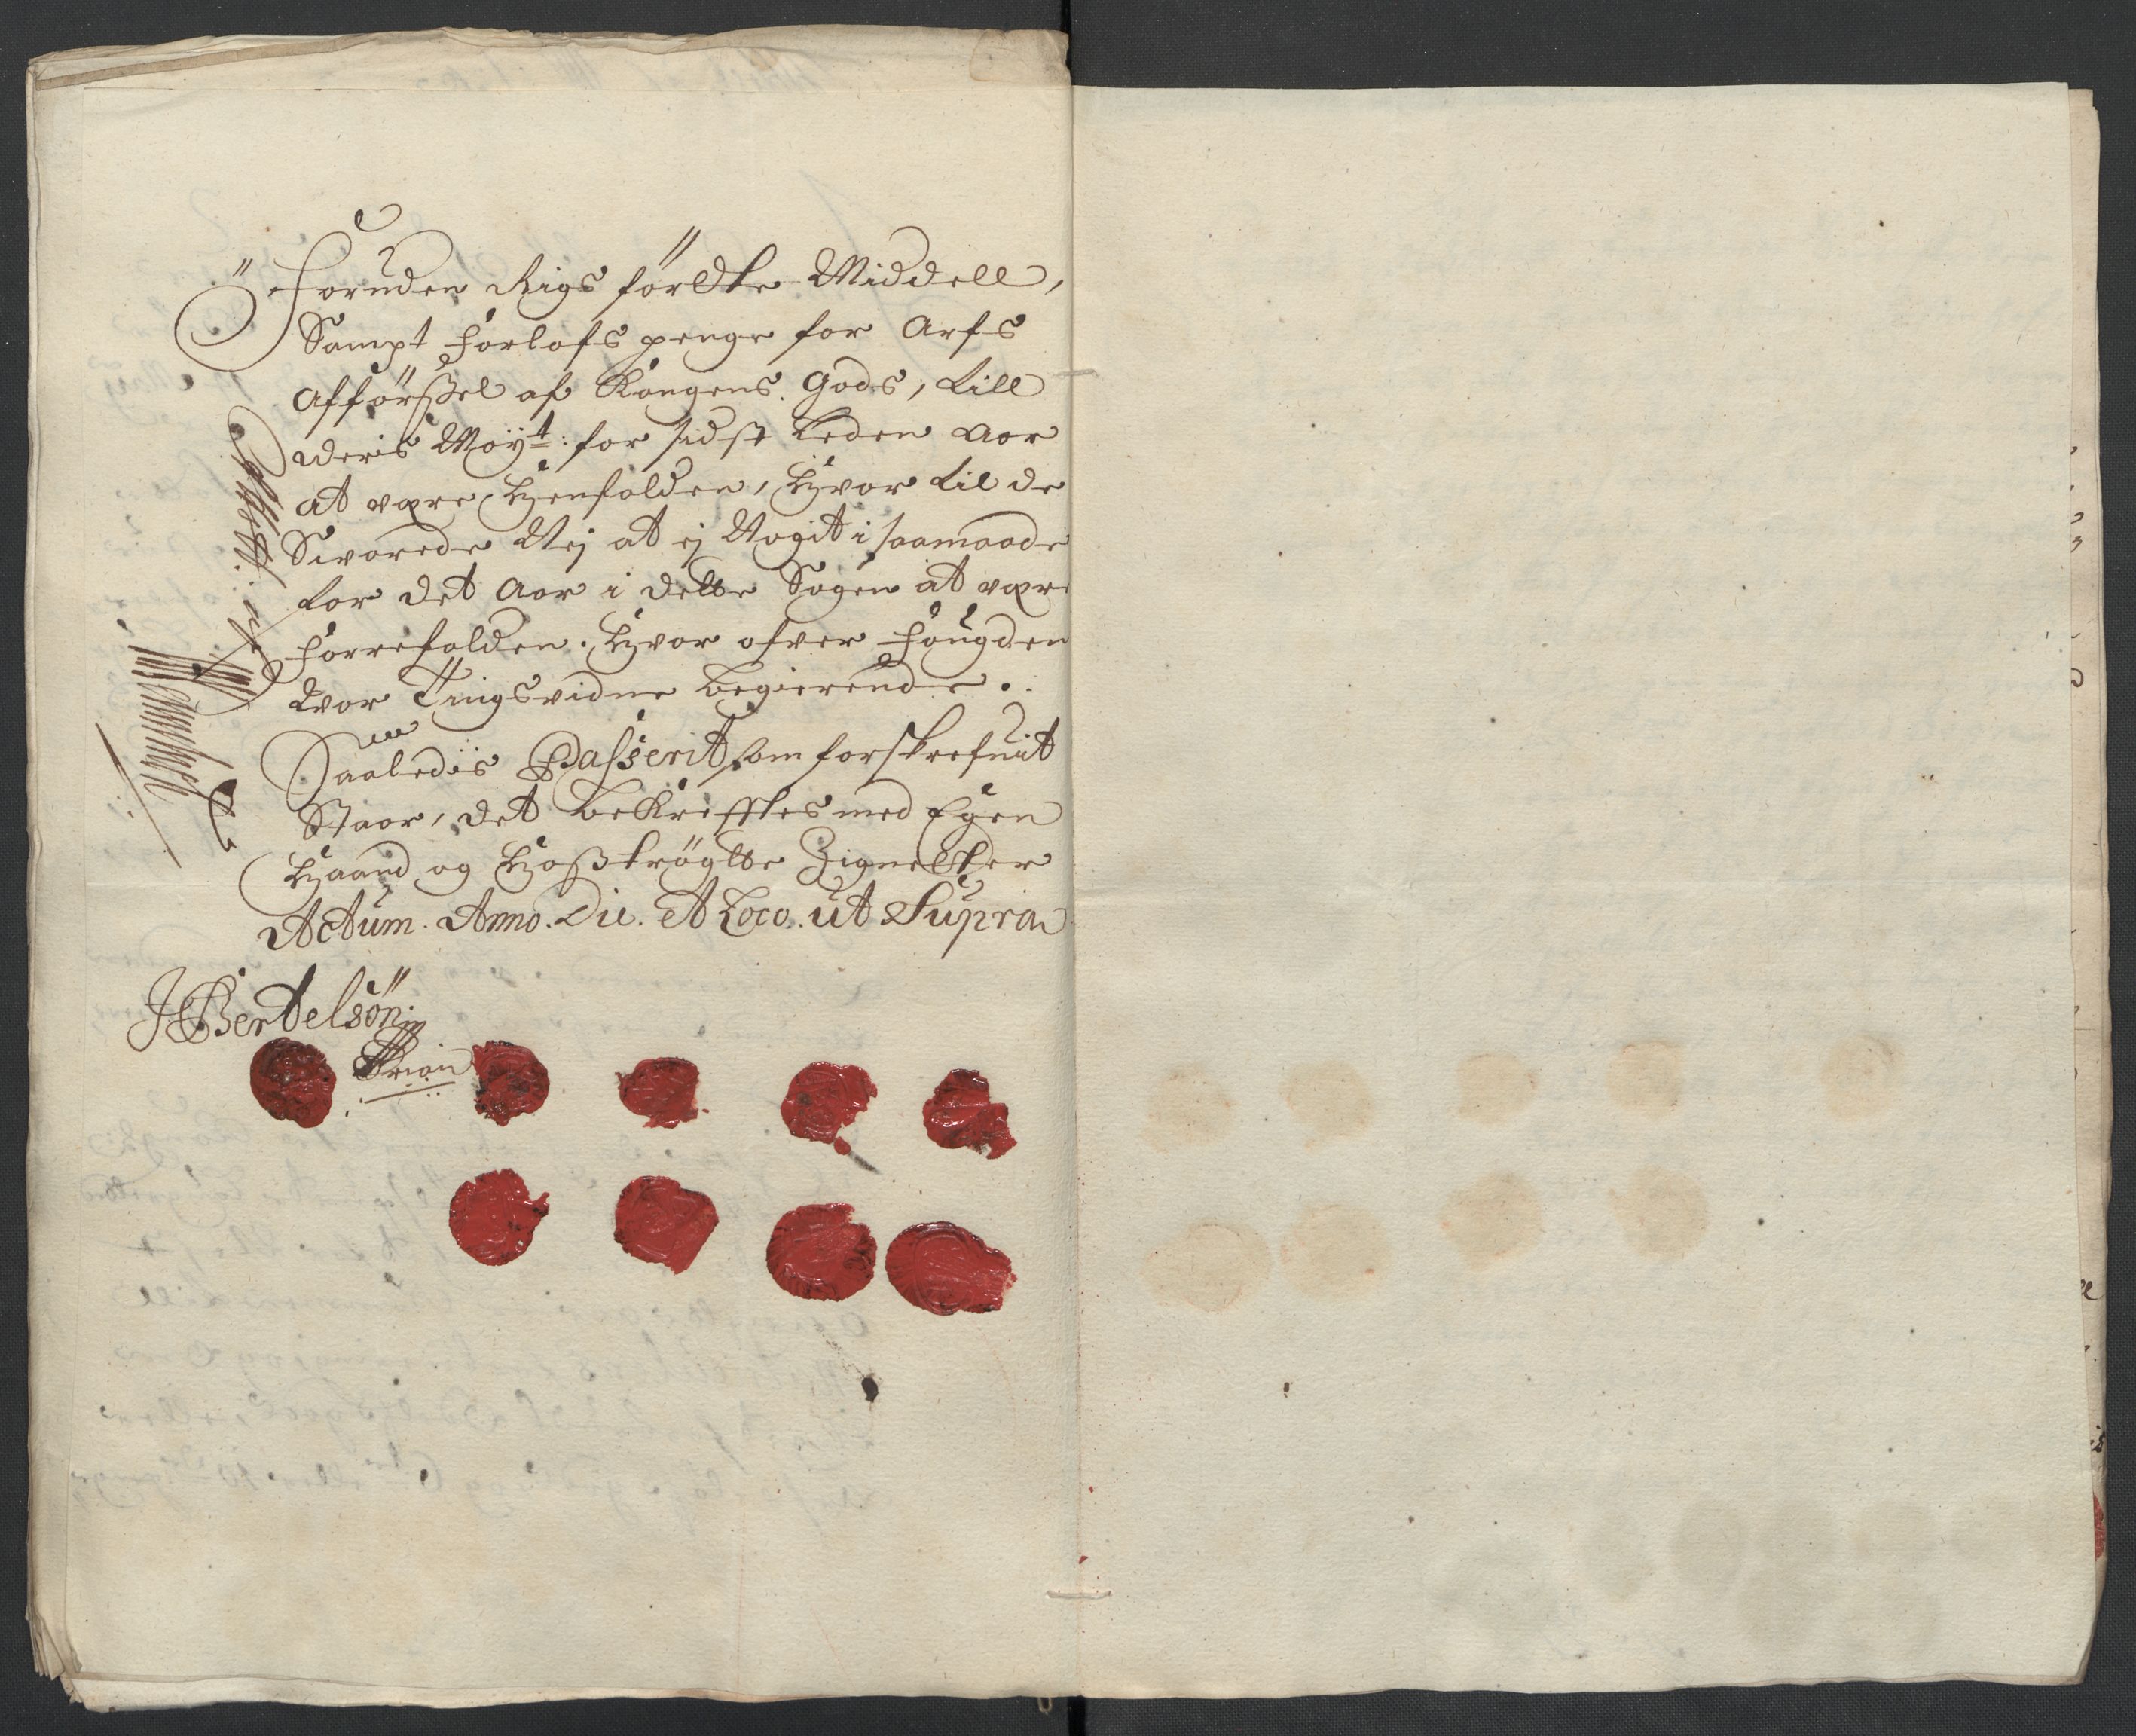 Foruden Rigs förldte Middell,
Sampt forlofs penge for Arfs
afförßel af Kongens Gods, till
deris Mayt: for sidst leden Aar
at være henfalden, hvor til de
Svarede Nej at ej Nogit i saamaade
for det Aar i dette Sogen at være
forrefalden. hvor ofver fougden
var Tingsvidne begierende.
Saaledis Passerit som forskrefuit
Staar, det bekrefftes med Egen
haand og hoßtrögte Zigneter
Actum. Anno. Die. et Loco. ut Supra
JBertelsön